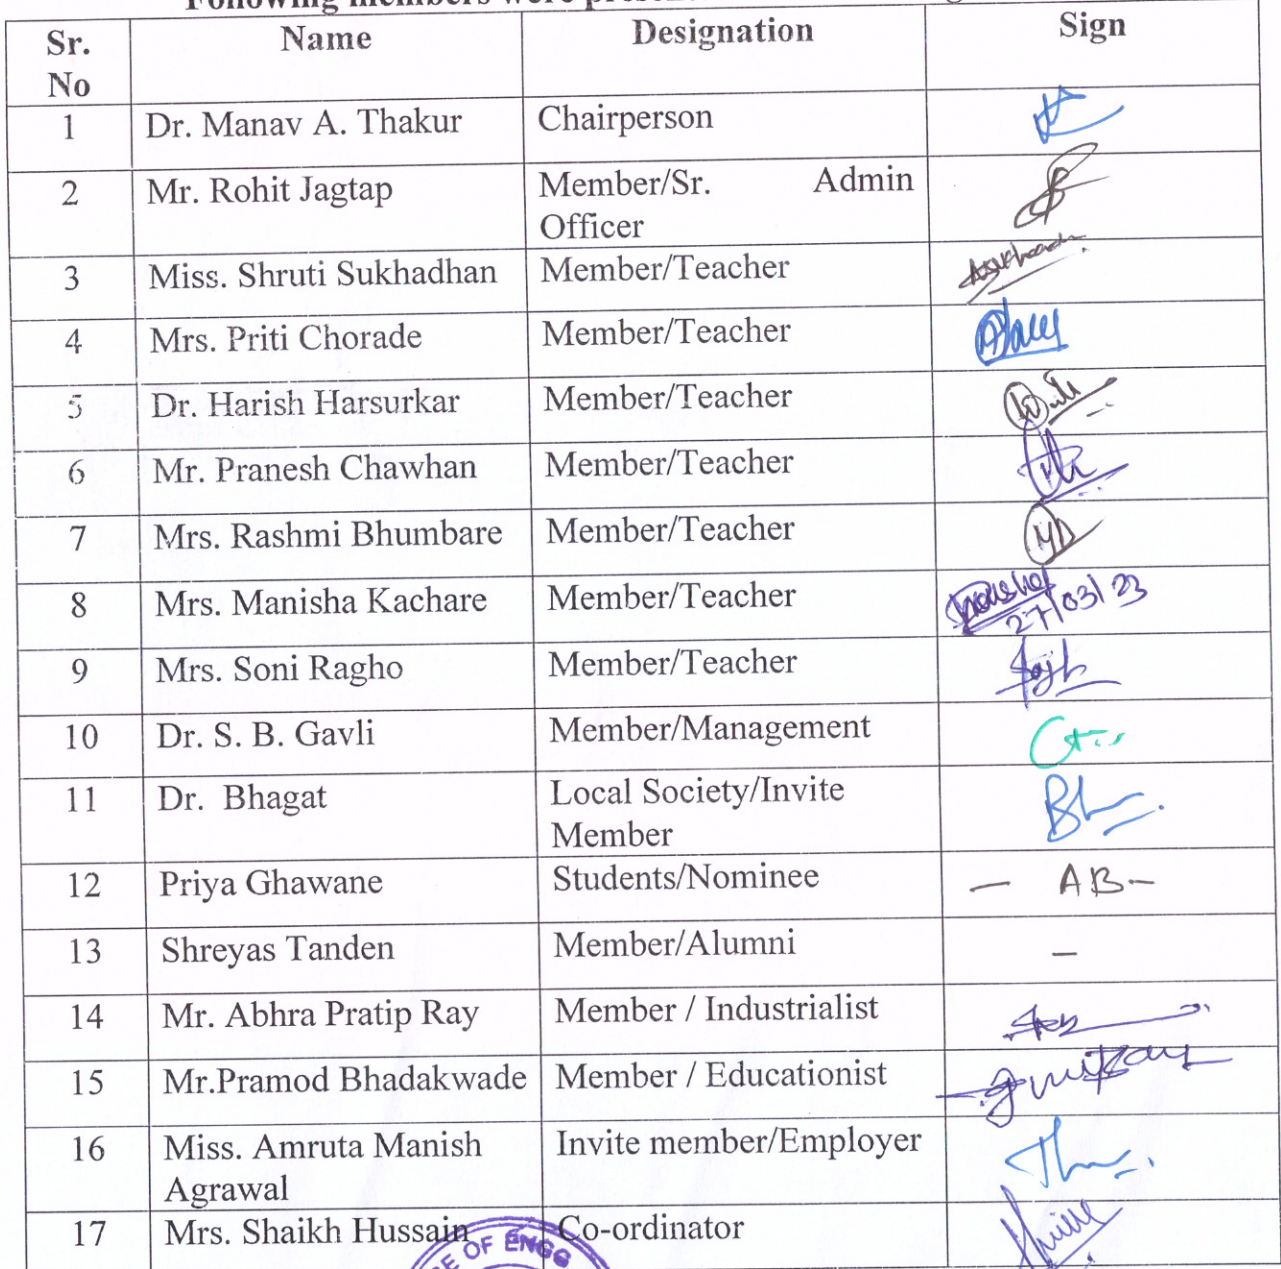 Following members were present
Sr. No Name Designation Sign
1 Dr. Manav A. Thakur Chairperson
2 Mr. Rohit Jagtap Member/Sr. Admin Officer
3 Miss. Shruti Sukhadhan Member/Teacher
4 Mrs. Priti Chorade Member/Teacher
5 Dr. Harish Harsurkar Member/Teacher
6 Mr. Pranesh Chawhan Member/Teacher
7 Mrs. Rashmi Bhumbare Member/Teacher
8 Mrs. Manisha Kachare Member/Teacher 27/03/23
9 Mrs. Soni Ragho Member/Teacher
10 Dr. S. B. Gavli Member/Management
11 Dr. Bhagat Local Society/Invite Member
12 Priya Ghawane Students/Nominee — AB -
13 Shreyas Tanden Member/Alumni -
14 Mr. Abhra Pratip Ray Member / Industrialist
15 Mr.Pramod Bhadakwade Member / Educationist
16 Miss. Amruta Manish Agrawal Invite member/Employer
17 Mrs. Shaikh Hussain Co-ordinator
OF ENGG